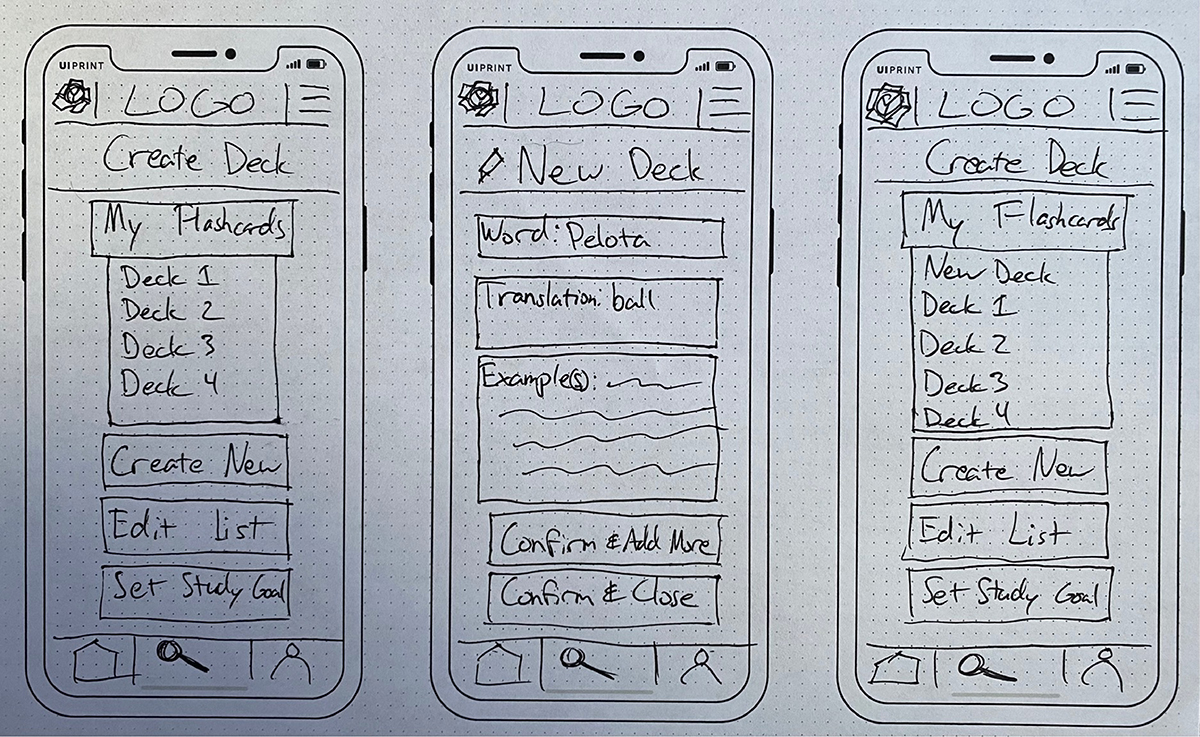 UIPRINT
LOGO
Create Deck
My Flashcards
Deck 1
Deck 2
Deck 3
Deck 4
Create New
Edit List
Set Study Goal
UIPRINT
LOGO
New Deck
Word: Pelota
Translation: ball
Example(s):
Confirm & Add More
Confirm & Close
UIPRINT
LOGO
Create Deck
My Flashcards
New Deck
Deck 1
Deck 2
Deck 3
Deck 4
Create New
Edit List
Set Study Goal